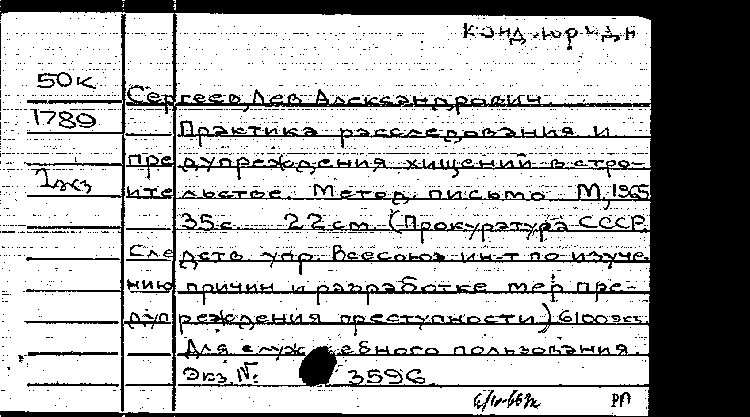 Канд. юрид. н
50к
Сергеев, Лев Александрович.
1780
Практика расследования и
предупреждения хищений в стро-
1экз
ительстве. Метод. письмо М, 1965
35с. 22 cm. (Прокуратура СССР.
Следств. упр. Всесоюз. ин-т по изуче
нию причин и разработке мер пре-
дупреждения преступности) 6100 экз.
Для служебного пользования.
Экз. №: 3596.
РП